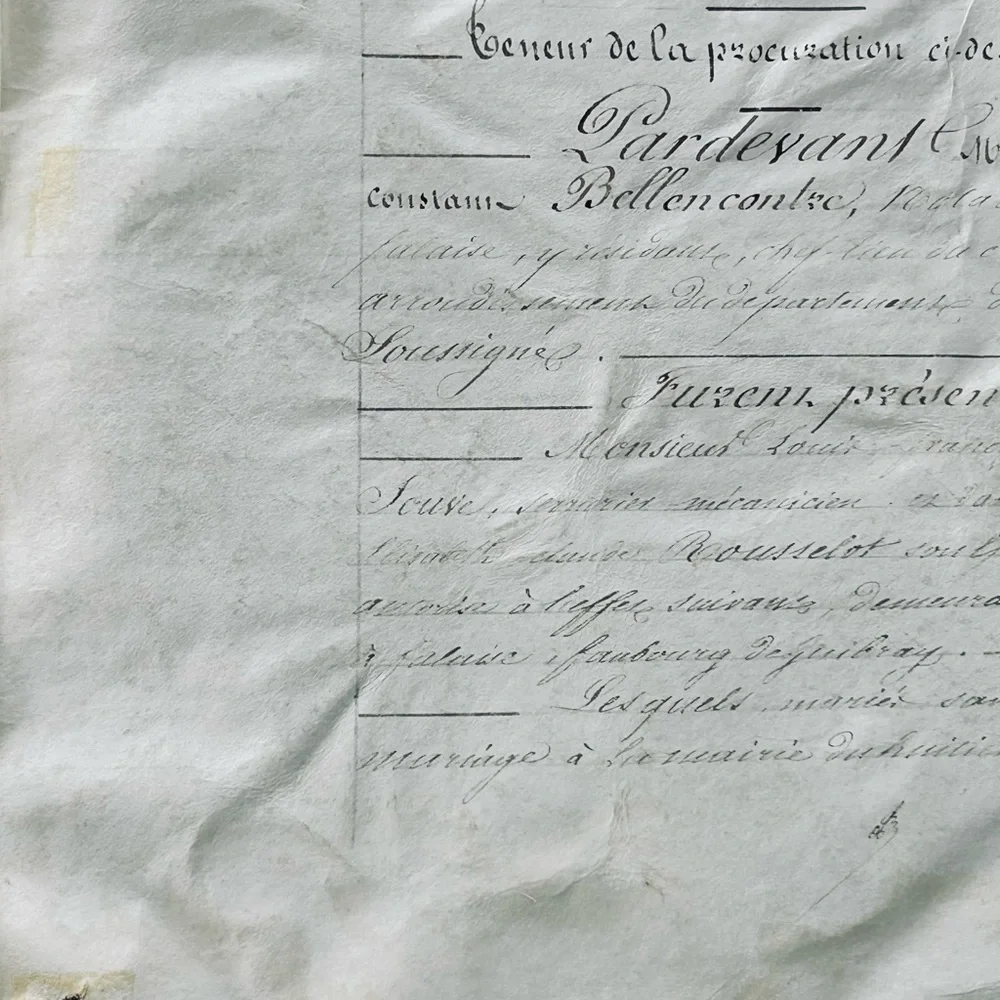 Teneur de la procuration ci-de
Pardevant M
constant Bellencontre, Nota
falaise, y résidant, chef-lieu du c
arrondissement du département, d
Soussigné.
Furent présen
Monsieur Louis franc
Jouve, serrurier mécanicien et Da
Elisabeth claude Rousselot son é
autorise à l'effet suivant, demeura
à falaise, faubourg de guibray. -
Lesquels mariés san
mariage à la mairie du huitiè